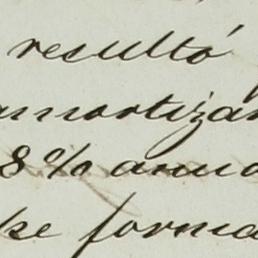 resultó
amortizan
8 % anua
se forma